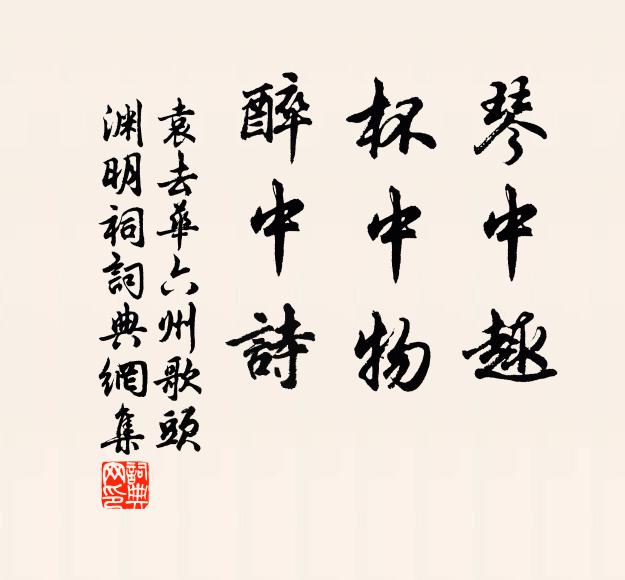 琴中趣
杯中物
醉中詩
袁去華六州歌頭
渊明祠詞典網集
詞典网印